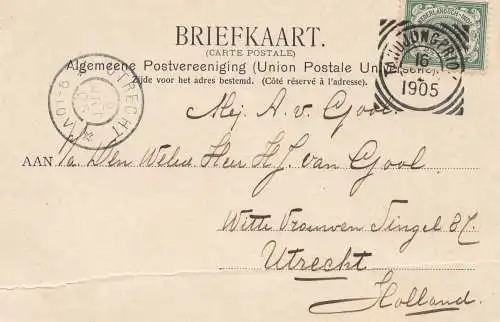 BRIEFKAART.
(CARTE POSTALE)
Algemeene Postvereeniging (Union Postale Universelle)
Zijde voor het adres bestemd. (Côté réservé à l'adresse).
NEDERLANDSCH-INDIË
TANDJONGPRIOK
16
1905
UTRECHT
Mej. A. v. Gool.
AAN p/a Den Weled. Heer H. J. van Gool
Witte Vrouwen Singel 87.
Utrecht
Holland.